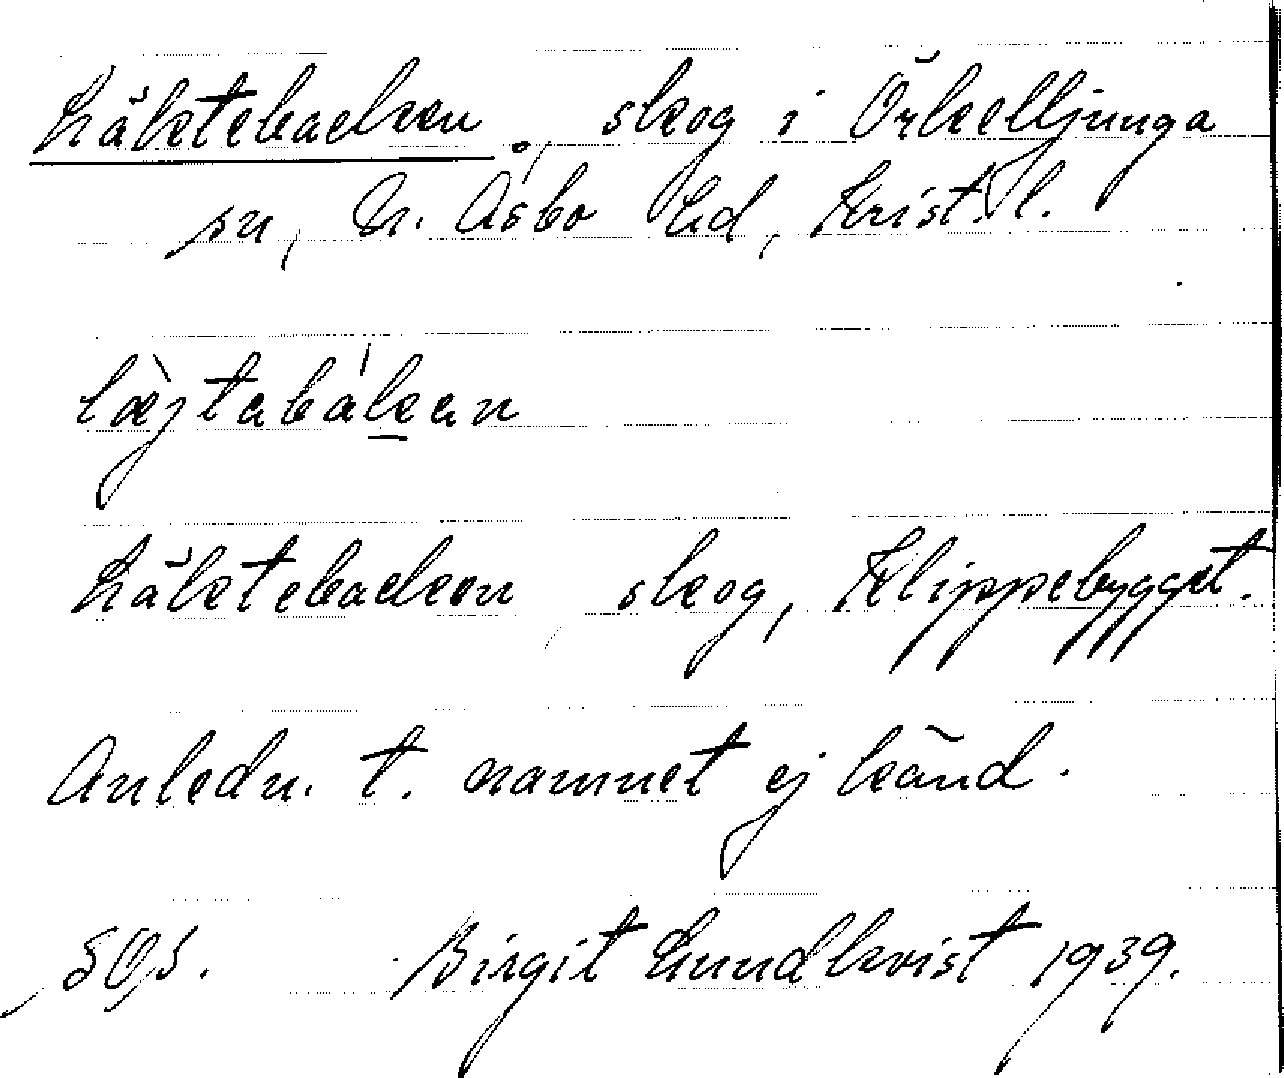 Läktebacken, skog i Örkelljunga
sn, N. Åsbo hd, Krist. l.
læ̀jtabák̲an
Läktebacken, skog, Klippebygget.
Anledn. t. namnet ej känd.
Birgit Lundkvist 1939.